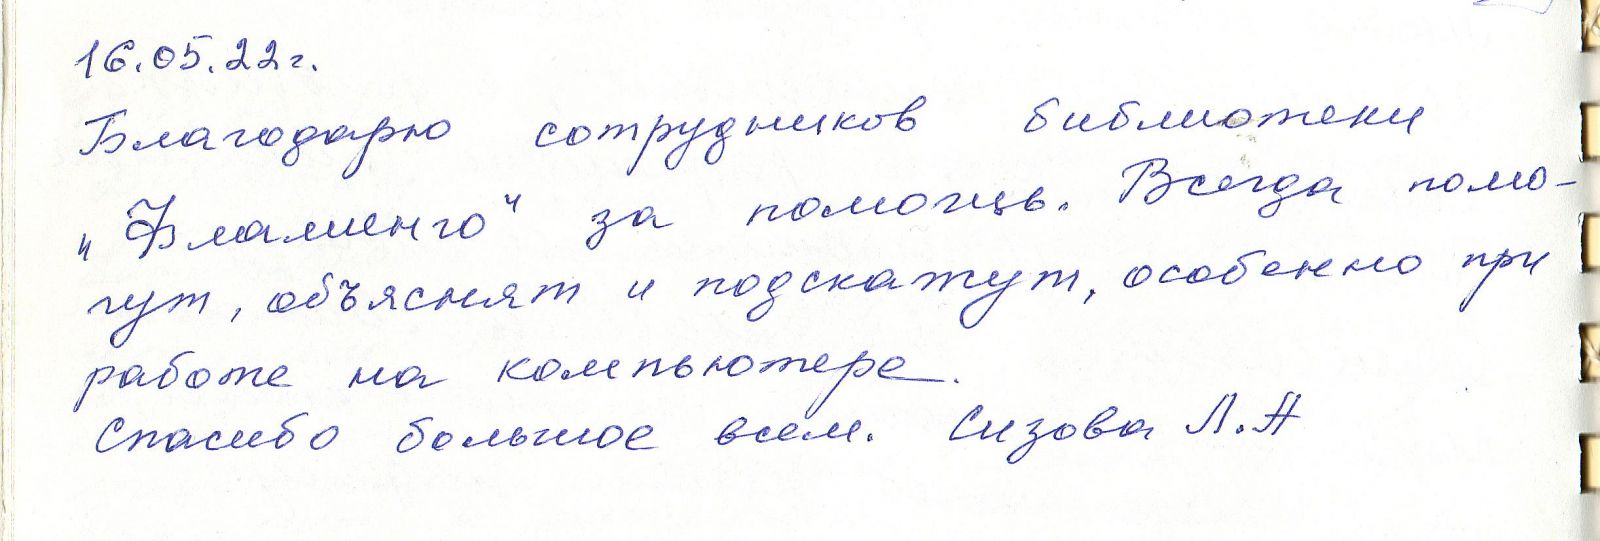 16.05.22г.
Благодарю сотрудников библиотеки
"Фламенго" за помощь. Всегда помо-
гут, объяснят и подскажут, особенно при
работе на компьютере.
Спасибо большое всем. Сизова Л.А